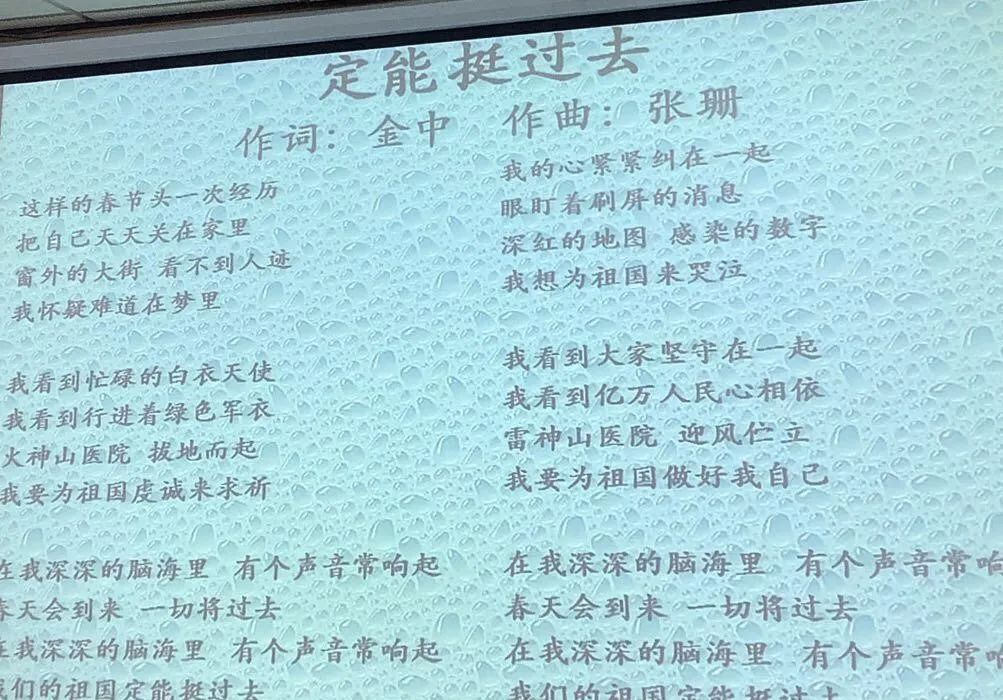 定能挺过去
作词：金中 作曲：张珊
这样的春节头一次经历
把自己天天关在家里
窗外的大街 看不到人迹
我怀疑难道在梦里
我看到忙碌的白衣天使
我看到行进着绿色军衣
火神山医院 拔地而起
我要为祖国虔诚来求祈
在我深深的脑海里 有个声音常响起
春天会到来 一切将过去
在我深深的脑海里 有个声音常响起
我们的祖国定能挺过去
我的心紧紧纠在一起
眼盯着刷屏的消息
深红的地图 感染的数字
我想为祖国来哭泣
我看到大家坚守在一起
我看到亿万人民心相依
雷神山医院 迎风伫立
我要为祖国做好我自己
在我深深的脑海里 有个声音常响
春天会到来 一切将过去
在我深深的脑海里 有个声音常响
我们的祖国定能挺过去